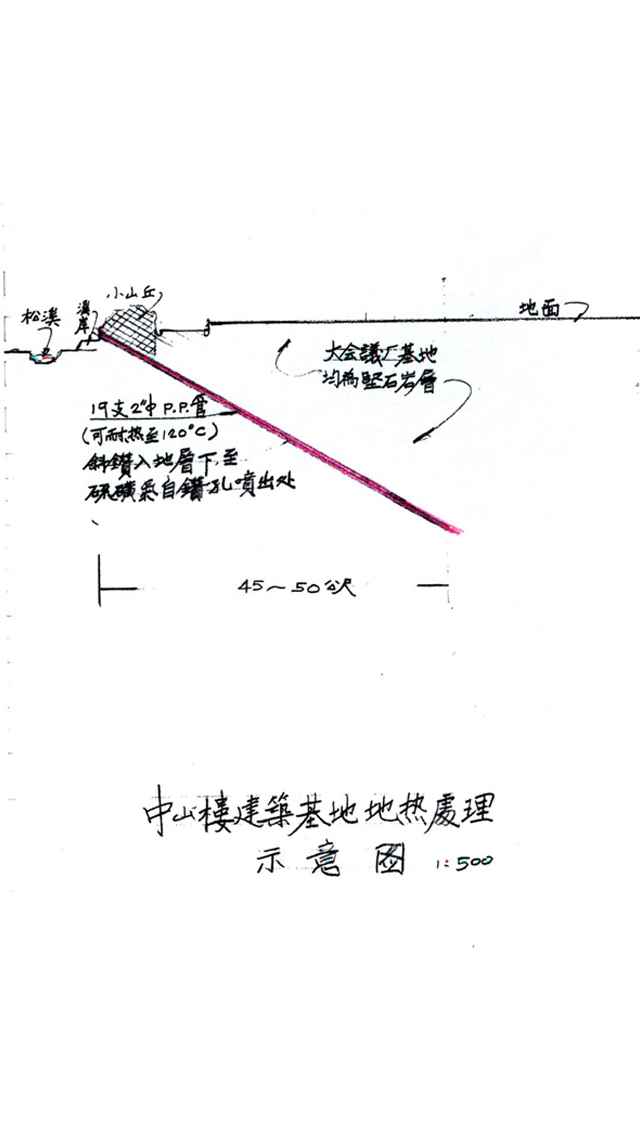 小山丘
松溪
溪岸
地面
大会議厂基地
均為堅石岩層
19支2"中P.P.管
(可耐热至120°C)
斜鑽入地層下至
硫磺氣自鑽孔噴出处
45～50公尺
中山樓建築基地地热處理
示意图 1:500